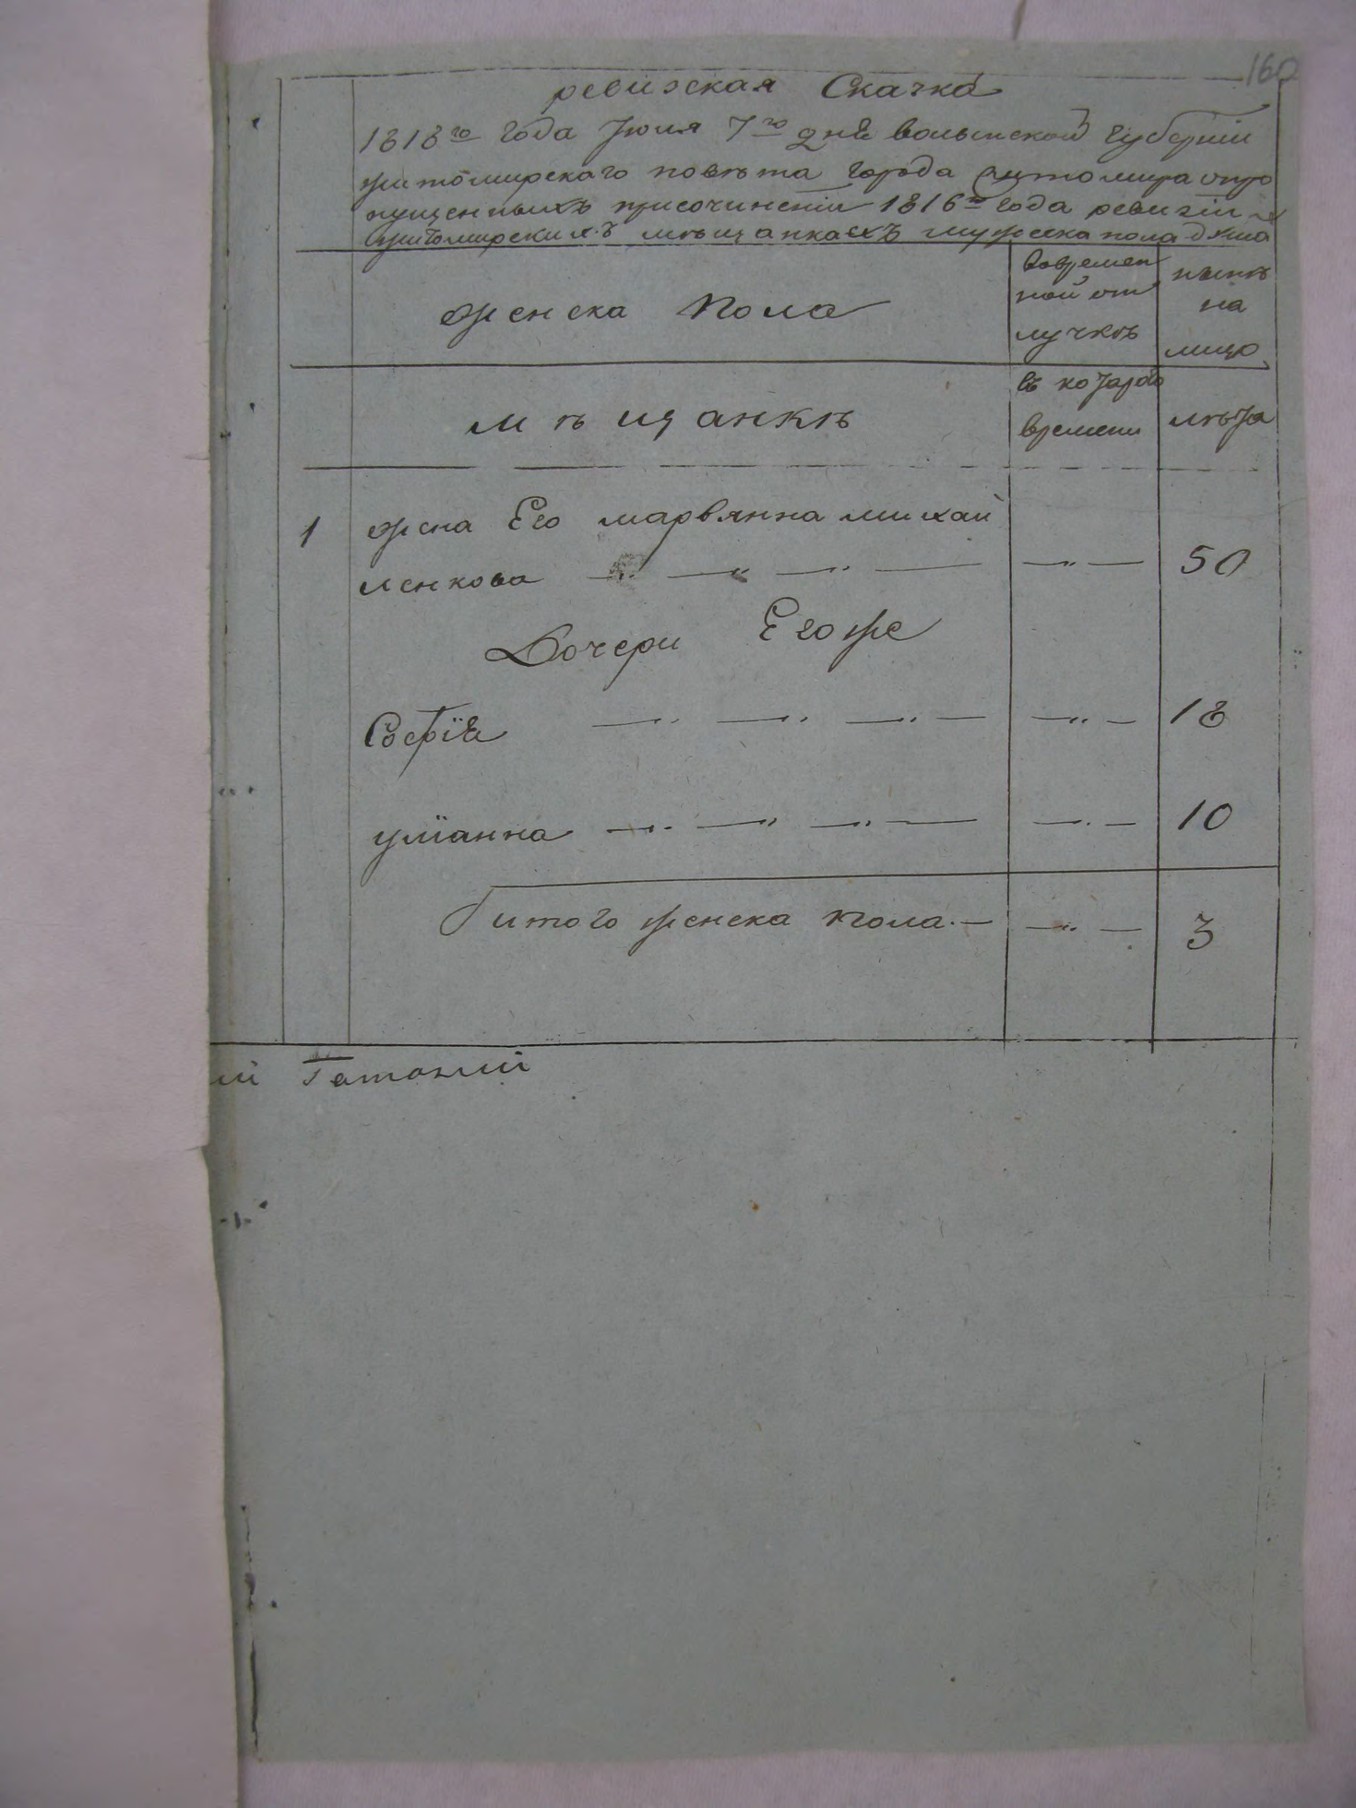 160
ревизская Скачка
1818го года Июля 7го дня волынской губернiи
житомирскаго повѣта города житомира опро
пущенныхъ присочиненiи 1816го года ревизiи
житомирскихъ мѣщанкахъ мужеска пола душа
женска пола
вовремен
ной от
лучкѣ
нынѣ
на
лицо
мѣщанкѣ
въ котараго
времени
лѣта
1 жена Его марвянна михай
ленкова 50
Дочери Егоже
Софiя 18
улiанна 10
итого женска пола 3